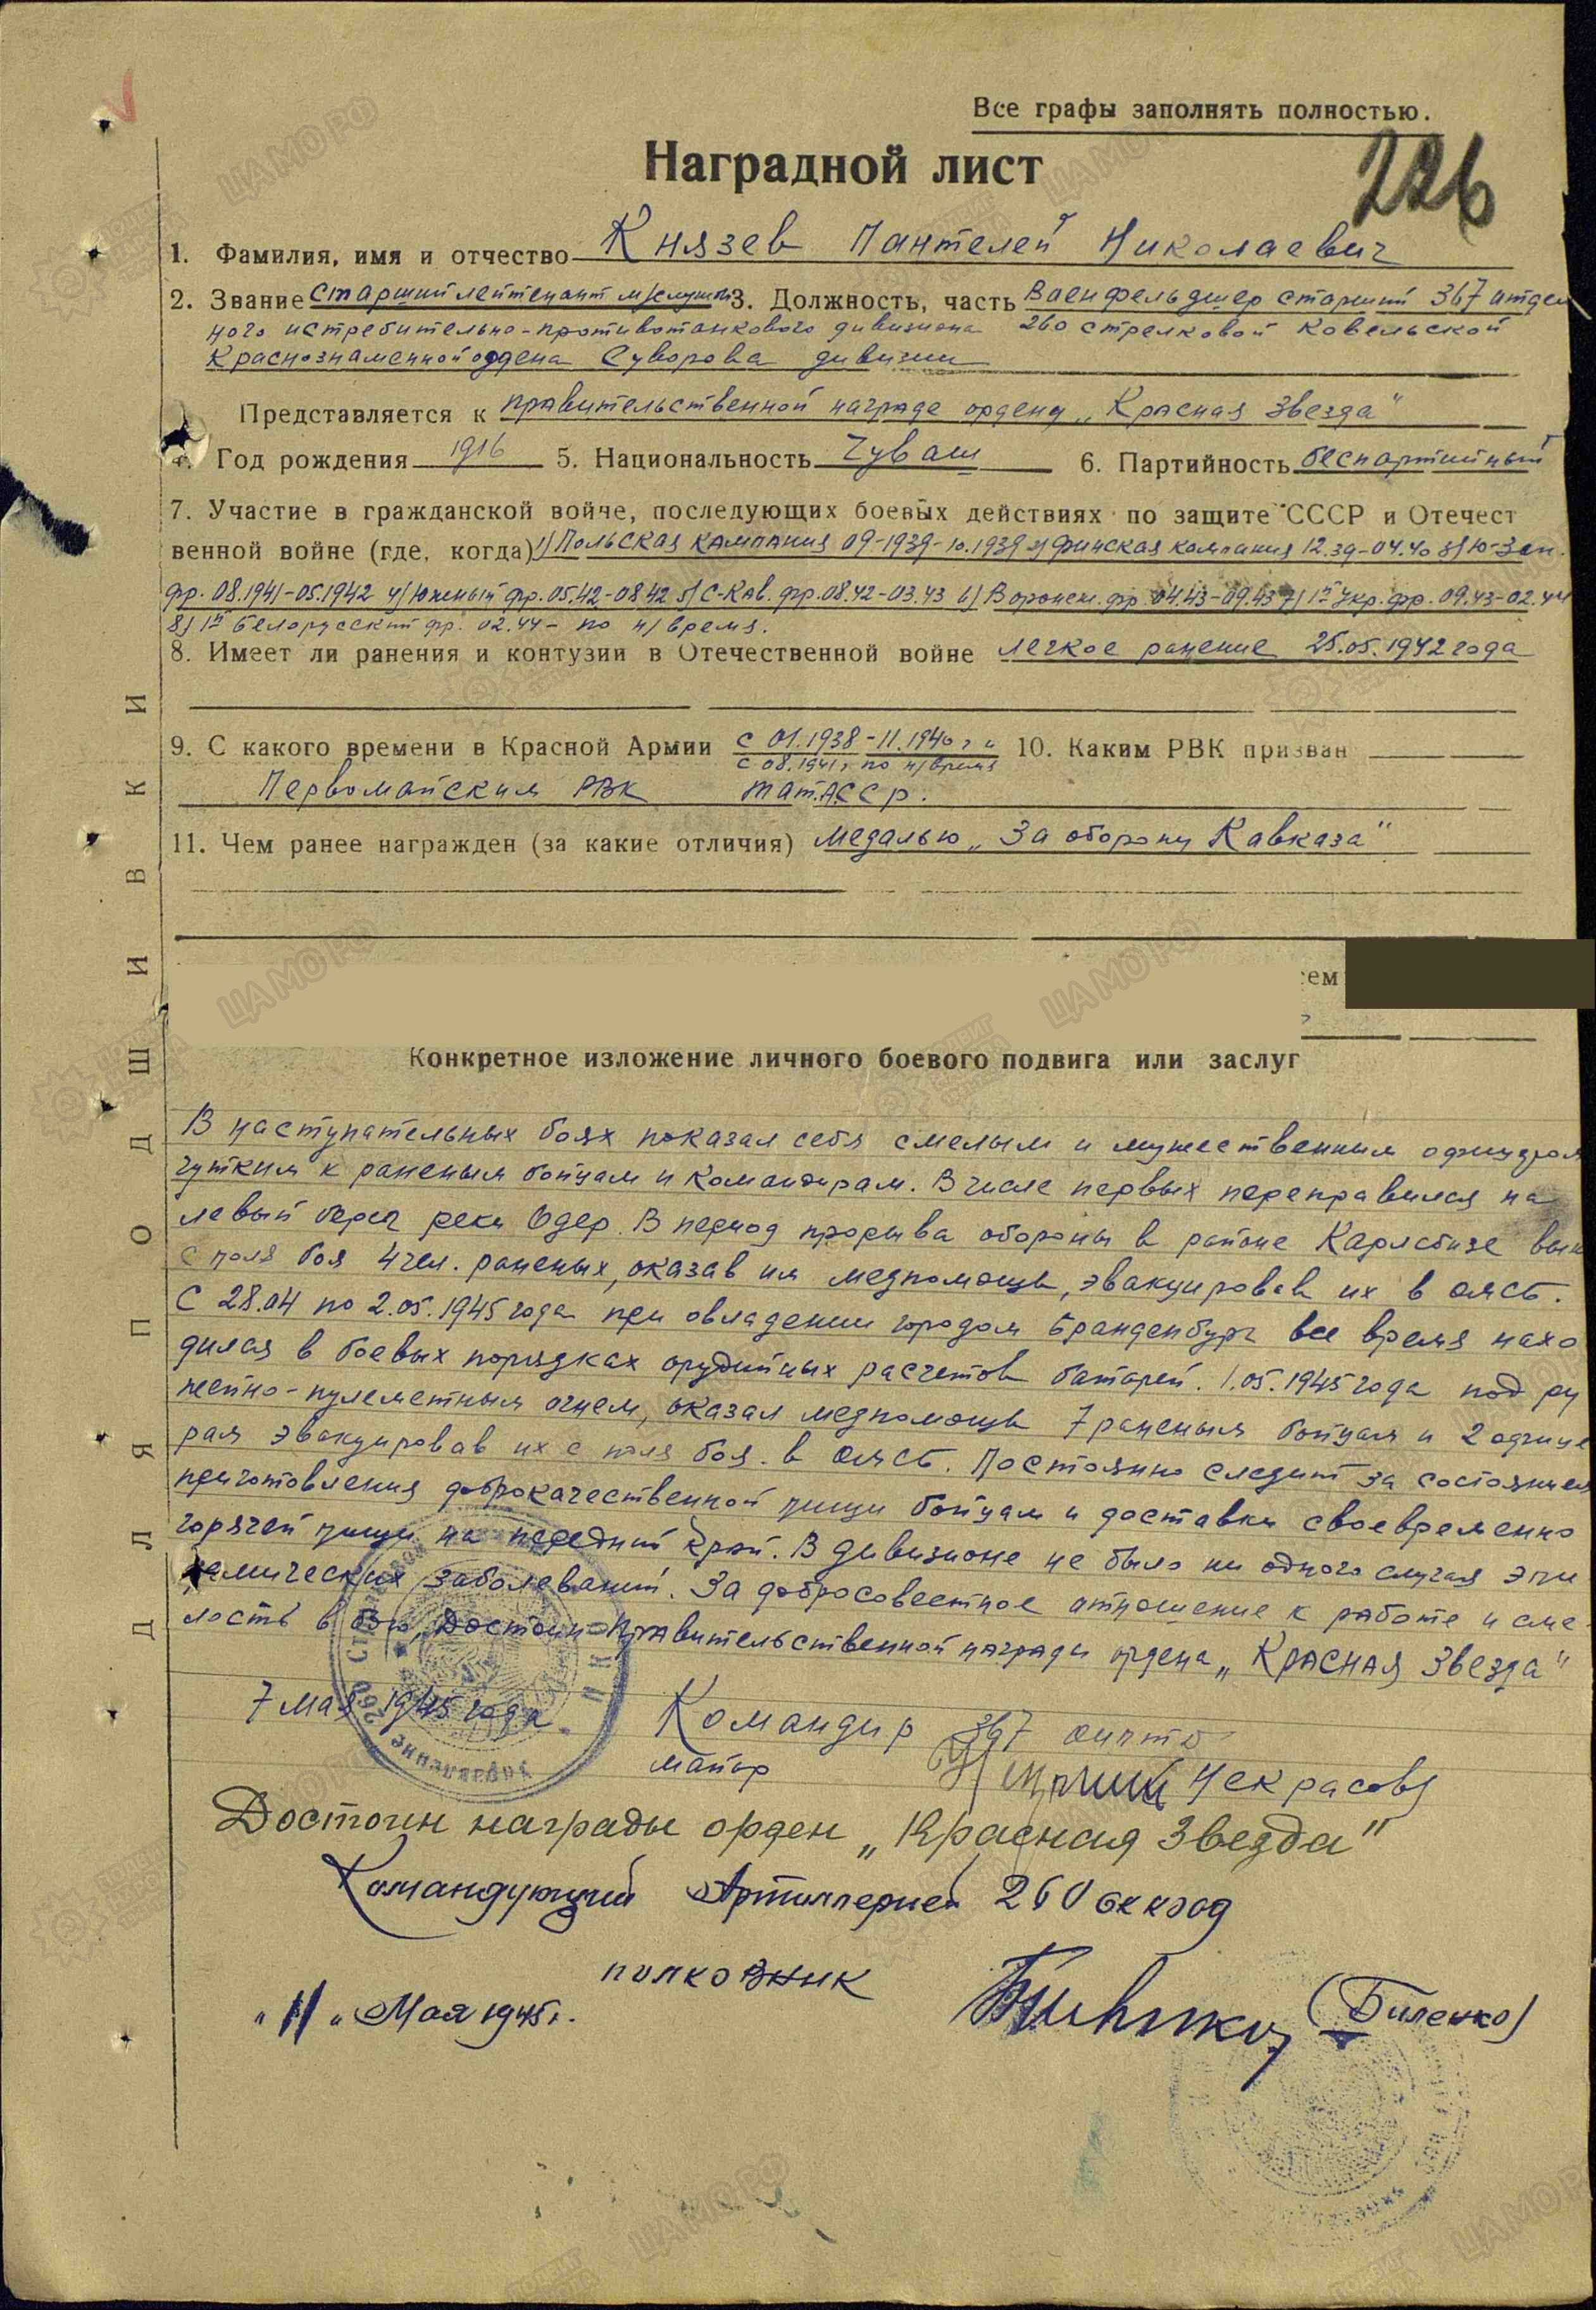 Все графы заполнять полностью.
226
Наградной лист
1. Фамилия, имя и отчество Князев Пантелей Николаевич
2. Звание Старший лейтенант м/службы 3. Должность, часть Военфельдшер старший 367 отдель
ного истребительно-противотанкового дивизиона 260 стрелковой Ковельской
Краснознаменной ордена Суворова дивизии
Представляется к правительственной награде ордену „Красная Звезда"
4. Год рождения 1916 5. Национальность Чуваш 6. Партийность беспартийный
7. Участие в гражданской войне, последующих боевых действиях по защите СССР и Отечест
венной войне (где, когда) 1) Польская кампания 09-1939-10.1939 2) Финская кампания 12.39-04.40 3) Ю-Зап.
фр. 08.1941-05.1942 4) Южный фр. 05.42-08.42 5) С-Кав. фр. 08.42-03.43 6) Воронеж. фр. 04.43-09.43 7) 1й Укр. фр. 09.43-02.44
8) 1й Белорусский фр. 02.44- по н/время.
8. Имеет ли ранения и контузии в Отечественной войне легкое ранение 25.05.1942 года
9. С какого времени в Красной Армии с 01.1938-11.1940 г и 10. Каким РВК призван
с 08.1941 г по н/время
Первомайским РВК Тат.АССР.
11. Чем ранее награжден (за какие отличия) медалью „За оборону Кавказа"
ем
Конкретное изложение личного боевого подвига или заслуг
В наступательных боях показал себя смелым и мужественным офицером
чутким к раненым бойцам и командирам. В числе первых переправился на
левый берег реки Одер. В период прорыва обороны в районе Карлсбизе вын
с поля боя 4 чел. раненых, оказав им медпомощь, эвакуировав их в омсб.
С 28.04 по 2.05.1945 года при овладении городом Бранденбург все время нахо
дился в боевых порядках орудийных расчетов батарей. 1.05.1945 года под ру
жейно-пулеметным огнем, оказал медпомощь 7 раненым бойцам и 2 офице
рам эвакуировав их с поля боя в омсб. Постоянно следит за состоянием
приготовления доброкачественной пищи бойцам и доставки своевременно
горячей пищи на передний край. В дивизионе не было ни одного случая эпи
демических заболеваний. За добросовестное отношение к работе и сме
лость в бою, Достоин Правительственной награды ордена „Красная Звезда"
7 мая 1945 года Командир 367 оиптд
майор Некрасов
Достоин награды орден „Красная Звезда"
Командующий Артиллерией 260
полковник
„11" Мая 1945 г. (Биленко)
ДЛЯ ПОДШИВКИ
260 Стрелковой
НКО
управление
ЦАМО РФ